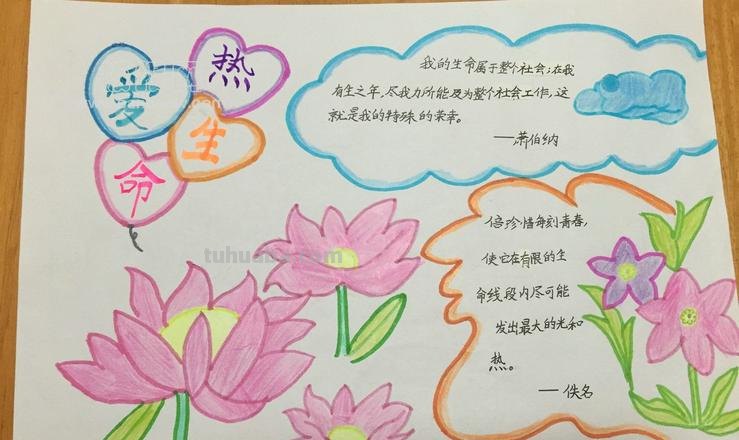 热
爱
生
命
我的生命属于整个社会；在我
有生之年，尽我力所能及为整个社会工作，这
就是我的特殊的荣幸。
——萧伯纳
倍珍惜每刻青春，
使它在有限的生
命线段内尽可能
发出最大的光和
热。
——佚名